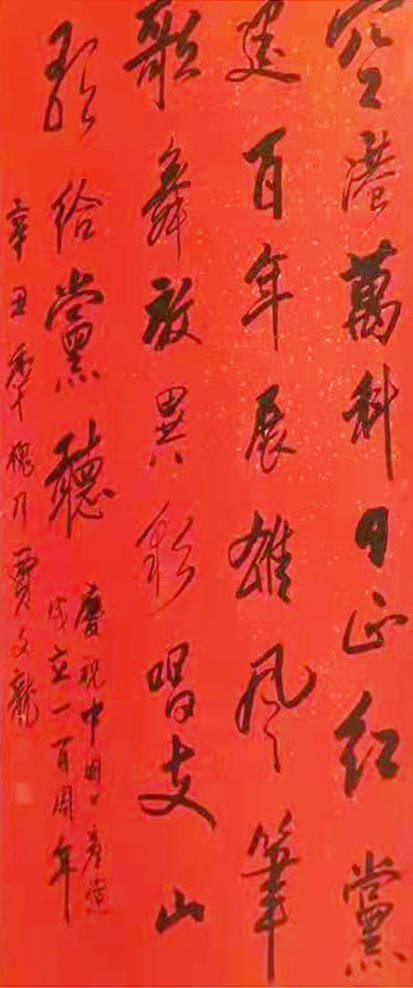 空港萬科日正红黨
建百年展雄风筆
歌舞放異彩唱支山
歌给黨聽
慶祝中國共產黨
成立一百周年
辛丑秊槐月賈文龍